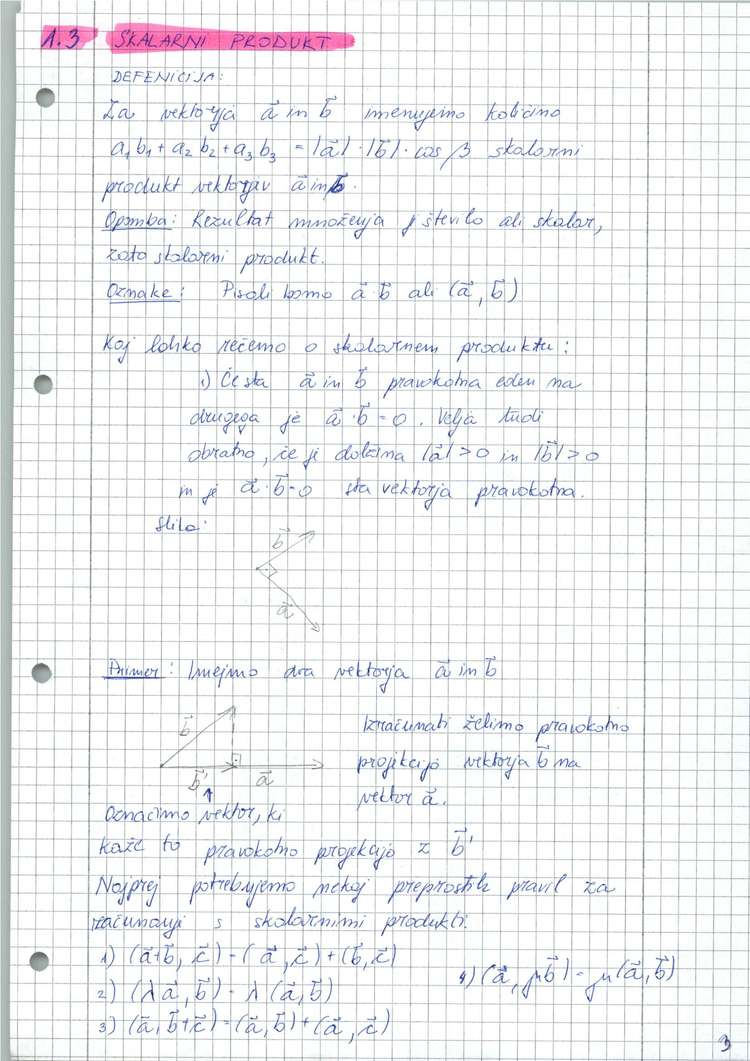 1.3 SKALARNI PRODUKT
DEFENICIJA:
Za vektorja a⃗ in b⃗ imenujemo količino
a₁b₁ + a₂b₂ + a₃b₃ = |a⃗| · |b⃗| · cos β skalarni
produkt vektorjev a⃗ in b⃗.
Opomba: Rezultat množenja je število ali skalar,
zato skalarni produkt.
Oznake: Pisali bomo a⃗·b⃗ ali (a⃗, b⃗)
Kaj lahko rečemo o skalarnem produktu:
1) Če sta a⃗ in b⃗ pravokotna eden na
drugega je a⃗·b⃗ = 0. Velja tudi
obratno, če je dolžina |a⃗| > 0 in |b⃗| > 0
in je a⃗·b⃗ = 0 sta vektorja pravokotna.
Slika:
b⃗
a⃗
Primer: Imejmo dva vektorja a⃗ in b⃗
b⃗
b⃗' a⃗
Izračunati želimo pravokotno
projekcijo vektorja b⃗ na
vektor a⃗.
Označimo vektor, ki
kaže to pravokotno projekcijo z b⃗'
Najprej potrebujemo nekaj preprostih pravil za
računanje s skalarnimi produkti.
1) (a⃗+b⃗, c⃗) = (a⃗, c⃗) + (b⃗, c⃗)
2) (λa⃗, b⃗) = λ(a⃗, b⃗)
3) (a⃗, b⃗+c⃗) = (a⃗, b⃗) + (a⃗, c⃗)
4) (a⃗, μb⃗) = μ(a⃗, b⃗)
3